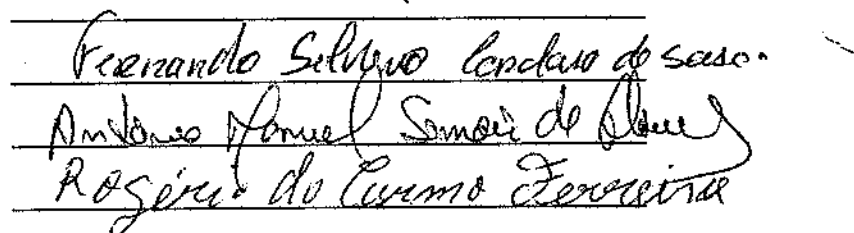 Fernando Silvino Cardoso de
António Manuel Simões de
Rogério do Carmo Ferreira